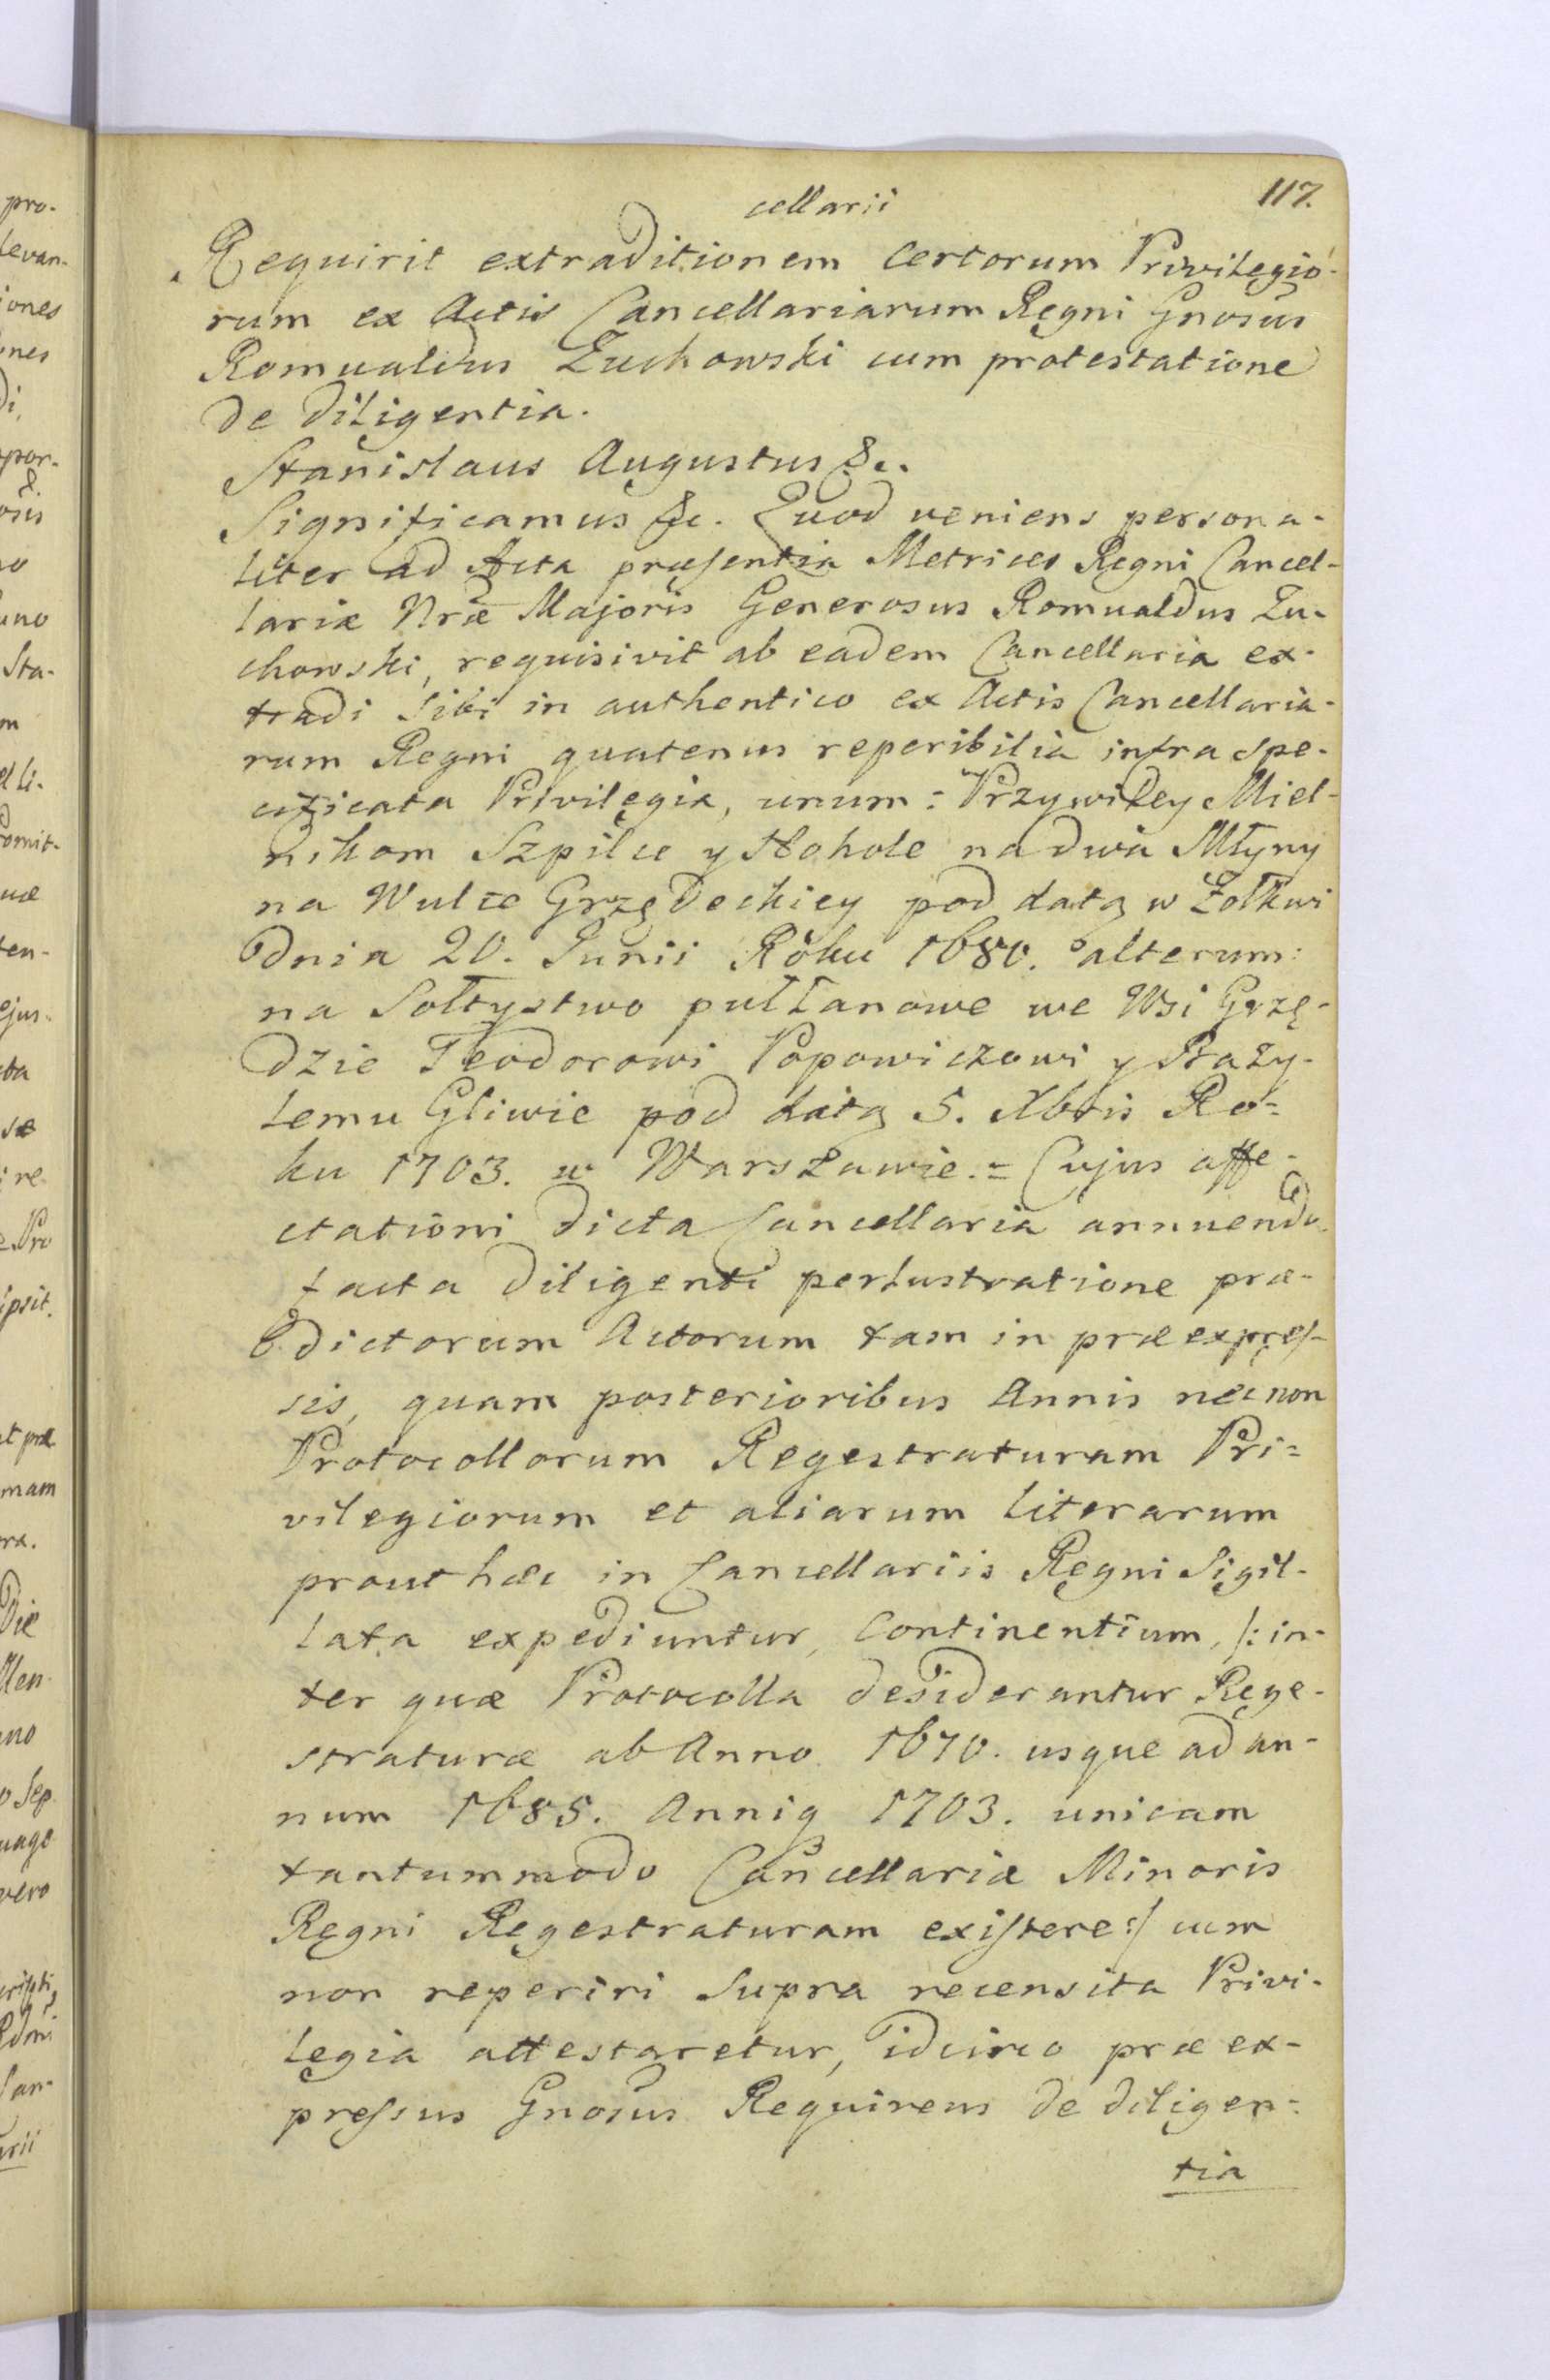 117.
cellarii
Requirit extraditionem certorum Privilegio-
rum ex Actis Cancellariarum Regni Gnosus
Romualdus Zuchowski cum protestatione
de diligentia.
Stanislaus Augustus &c.
Significamus &c. Quod veniens persona-
liter ad Acta præsentia Metrices Regni Cancel-
lariæ Nræ Majoris Generosus Romualdus Zu-
chowski, requisivit ab eadem Cancellaria ex-
tradi sibi in authentico ex Actis Cancellaria-
rum Regni quatenus reperibilia infra spe-
cificata Privilegia, unum: Przywiley Miel-
nikom Szpilce y Hohole na dwa Młyny
na Wulce Grzędeckiey pod datą w Żołkwi
dnia 20. Junii Roku 1680. alterum:
na Sołtystwo pułłanowe we Wsi Grzę-
dzie Teodorowi Popowiczowi y Bazy-
lemu Gliwie pod datą 5. Xbris Ro=
ku 1703. w Warszawie.= Cujus affe-
ctationi dicta Cancellaria annuendo
facta diligenti perlustratione præ-
dictorum Actorum tam in præexpres-
sis, quam posterioribus Annis nec non
Protocollorum Regestraturam Pri=
vilegiorum et aliarum literarum
prout hæc in Cancellariis Regni Sigil-
lata expediuntur, Continentium, /: in-
ter quæ Protocolla desiderantur Rege-
straturæ ab Anno 1670. usque ad an-
num 1685. Anniq 1703. unicam
tantummodo Cancellariæ Minoris
Regni Regestraturam existere :/ cum
non reperiri supra recensita Privi-
legia attestaretur, idcirco præex-
pressus Gnosus Requirens de diligen-
tia